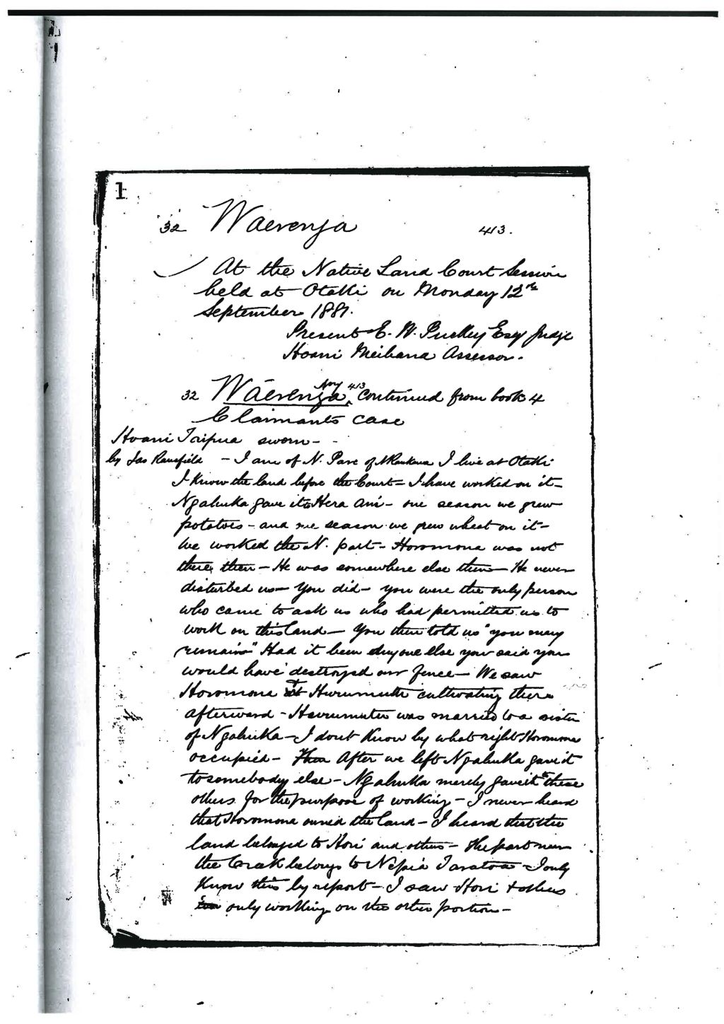 1
32 Waerenga 413.
At the Native Land Court Session
held at Otaki on Monday 12th
September 1881.
Present E. W. Puckey Esq Judge
Hoani Meihana Assessor.
32 Waerenga, No 413 Continued from book 4
Claimants case
Hoani Taipua sworn -
by Jas Ransfield - I am of N. Pare of I live at Otaki
I know the land before the Court - I have worked on it -
Ngahuka gave it to Hera Ani - one season we grew
potatoes - and one season we grew wheat on it -
We worked the N. part - Horomona was not
there then - He was somewhere else then - He never
disturbed us - You did - you were the only person
who came to ask us who had permitted us to
work on this land - You then told us "you may
remain" Had it been anyone else you said you
would have destroyed our fence - We saw
Horomona & cultivating there
afterward - was married to a sister
of Ngahuka - I dont know by what right Horomona
occupied - After we left Ngahuka gave it
to somebody else - Ngahuka merely gave it to these
others for the purpose of working - I never heard
that Horomona owned the land - I heard that the
land belonged to Hori and others - The part near
the Creek belongs to Nepia Taratoa - I only
know this by report - I saw Hori & others
only working on the other portion -